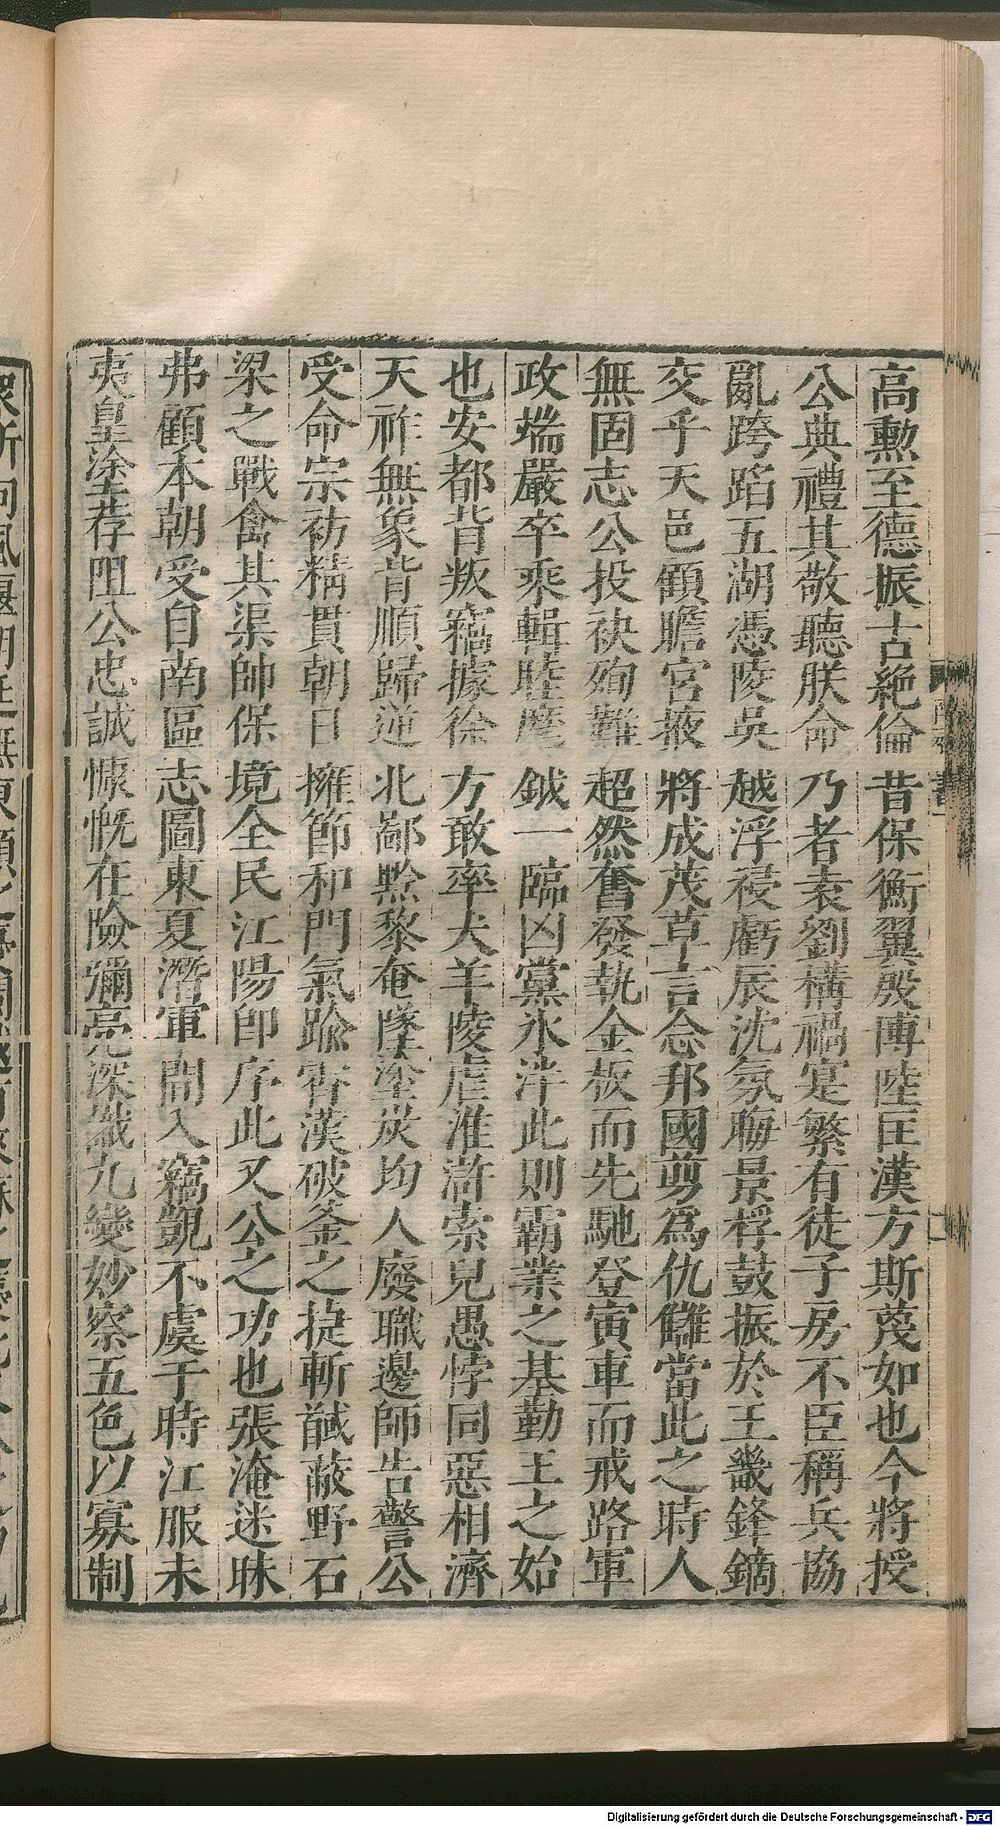 高勲至德振古絶倫昔保衡翼殷博陸匡漢方斯蔑如也今將授
公典禮其敬聽朕命乃者袁劉構禍寔繁有徒子房不臣稱兵協
亂跨蹈五湖憑陵吳越浮祲虧辰沈氛晦景桴鼓振於王畿鋒鏑
交乎天邑顧瞻宮掖將成茂草言念邦國剪爲仇讎當此之時人
無固志公投袂殉難超然奮發執金板而先馳登寅車而戒路軍
政端嚴卒乘輯睦麾鉞一臨凶黨氷泮此則霸業之基勤王之始
也安都背叛竊據徐方敢率犬羊陵虐淮滸索兒愚悖同惡相濟
天祚無象背順歸逆北鄙黔黎奄墜塗炭均人廢職邊師告警公
受命宗祊精貫朝日擁節和門氣踰霄漢破釜之捷斬馘蔽野石
梁之戰禽其渠帥保境全民江陽即序此又公之功也張淹迷昧
弗顧本朝受自南區志圖東夏潛軍間入竊覬不虞于時江服未
夷皇塗荐阻公忠誠慷慨在險彌亮深識九變妙察五色以寡制
Digitalisierung gefördert durch die Deutsche Forschungsgemeinschaft - DFG